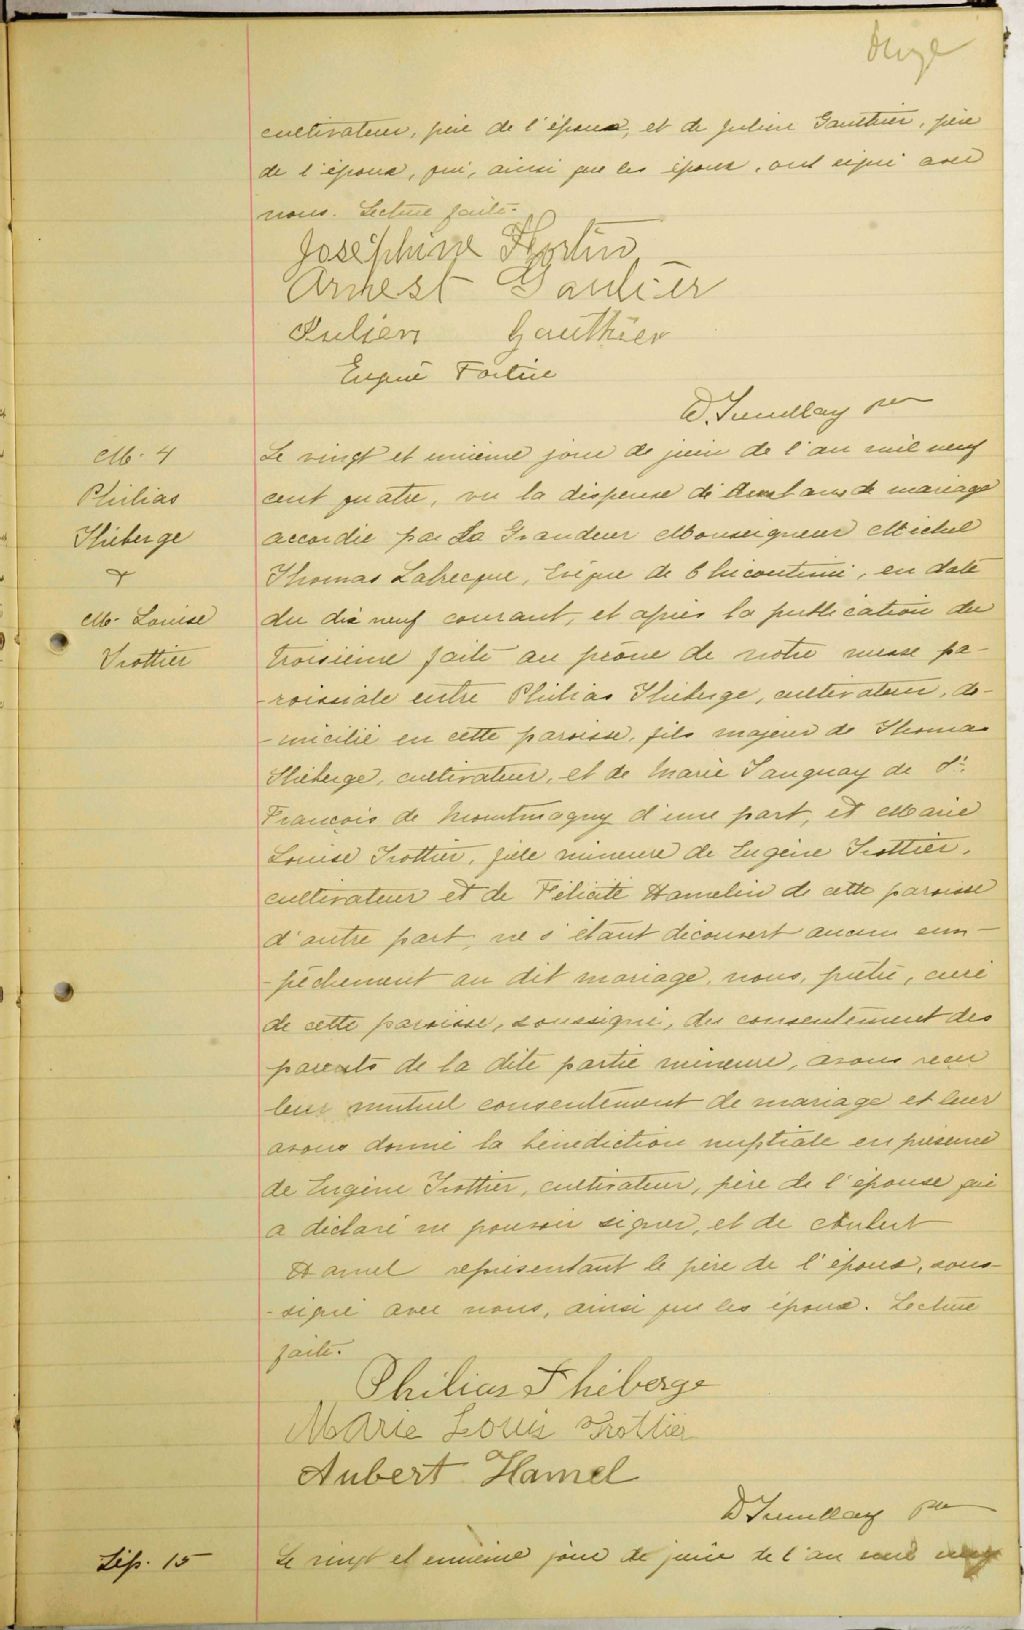 onze
cultivateur, père de l'épouse, et de Julien Gauthier, père
de l'époux, qui, ainsi que les époux, ont signé avec
nous. Lecture faite.
Joséphine Fortin
Arnest Gautier
Julien Gauthier
Eugène Fortin
D. Tremblay ptre
M. 4
Philias
Théberge
&
M. Louise
Trottier
Le vingt et unième jour de juin de l'an mil neuf
cent quatre, vu la dispense de deux bans de mariage
accordée par Sa Grandeur Monseigneur Michel
Thomas Labrecque, Evêque de Chicoutimi, en date
du dix neuf courant, et après la publication du
troisième faite au prône de notre messe pa-
-roissiale entre Philias Théberge, cultivateur, do-
-micilié en cette paroisse, fils majeur de Thomas
Théberge, cultivateur, et de Marie Tanguay de St.
François de Montmagny d'une part, et Marie
Louise Trottier, fille mineure de Eugène Trottier,
cultivateur et de Félicité Hamelin de cette paroisse
d'autre part, ne s'étant découvert aucun em-
-pêchement au dit mariage, nous, prêtre, curé
de cette paroisse, soussigné, du consentement des
parents de la dite partie mineure, avons reçu
leur mutuel consentement de mariage et leur
avons donné la bénédiction nuptiale en présence
de Eugène Trottier, cultivateur, père de l'épouse qui
a déclaré ne pouvoir signer, et de Aubert
Hamel représentant le père de l'époux, sous-
-signé avec nous, ainsi que les époux. Lecture
faite.
Philias Théberge
Marie Louis Trottier
Aubert Hamel
D Tremblay ptre
Sép. 15
Le vingt et unième jour de juin de l'an mil neuf